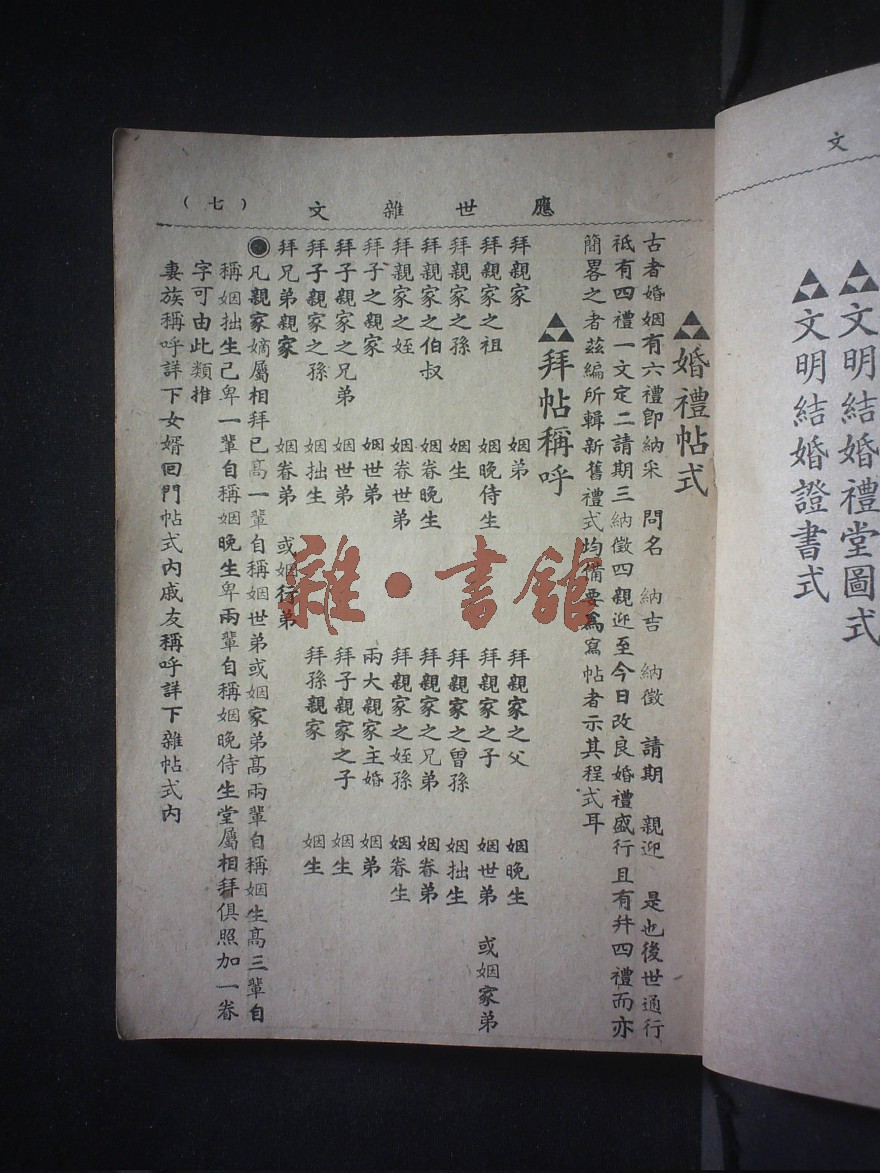 文
文明結婚禮堂圖式
文明結婚證書式
應世雜文
(七)
婚禮帖式
古者婚姻有六禮卽納采 問名 納吉 納徵 請期 親迎 是也後世通行
祇有四禮一文定二請期三納徵四親迎至今日改良婚禮盛行且有幷四禮而亦
簡畧之者茲編所輯新舊禮式均備要爲寫帖者示其程式耳
拜帖稱呼
拜親家 姻弟 拜親家之父 姻晚生
拜親家之祖 姻晚侍生 拜親家之子 姻世弟 或姻家弟
拜親家之孫 姻生 拜親家之曾孫 姻拙生
拜親家之伯叔 姻眷晚生 拜親家之兄弟 姻眷弟
拜親家之姪 姻眷世弟 拜親家之姪孫 姻眷生
拜子之親家 姻世弟 兩大親家主婚 姻弟
拜子親家之兄弟 姻世弟 拜子親家之子 姻生
拜子親家之孫 姻拙生 拜孫親家 姻生
拜兄弟親家 姻眷弟 或姻行弟
凡親家嫡屬相拜已高一輩自稱姻世弟或姻家弟高兩輩自稱姻生高三輩自
稱姻拙生己卑一輩自稱姻晚生卑兩輩自稱姻晚侍生堂屬相拜俱照加一眷
字可由此類推
妻族稱呼詳下女婿回門帖式內戚友稱呼詳下雜帖式內
雜·書館